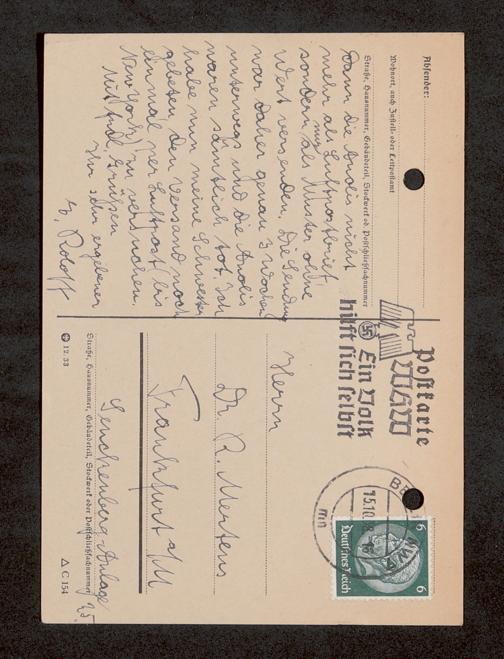 Absender:
Wohnort, auch Zustell- oder Leitpostamt
Straße, Hausnummer, Gebäudeteil, Stockwerk od. Postschließfachnummer
dann die Anolis nicht
mehr als Luftpostbrief,
sondern nur als Muster ohne
Wert versenden. Die Sendung
war daher genau 3 Wochen
unterwegs und die Anolis
waren sämtlich tot. Ich
habe nun meine Schwester
gebeten den Versand noch
einmal per Luftpost (bis
New York) zu versuchen.
Mit frdl. Grüßen
Ihr sehr ergebener
E. Roloff
Postkarte
WHW
Ein Volk
hilft sich selbst
BE
15.10
NW7
6 6
Deutsches Reich
Herrn
Dr. R. Mertens
Frankfurt a/M
Senckenberg-Anlage 25.
Straße, Hausnummer, Gebäudeteil, Stockwerk oder Postschließfachnummer
12.33
C 154